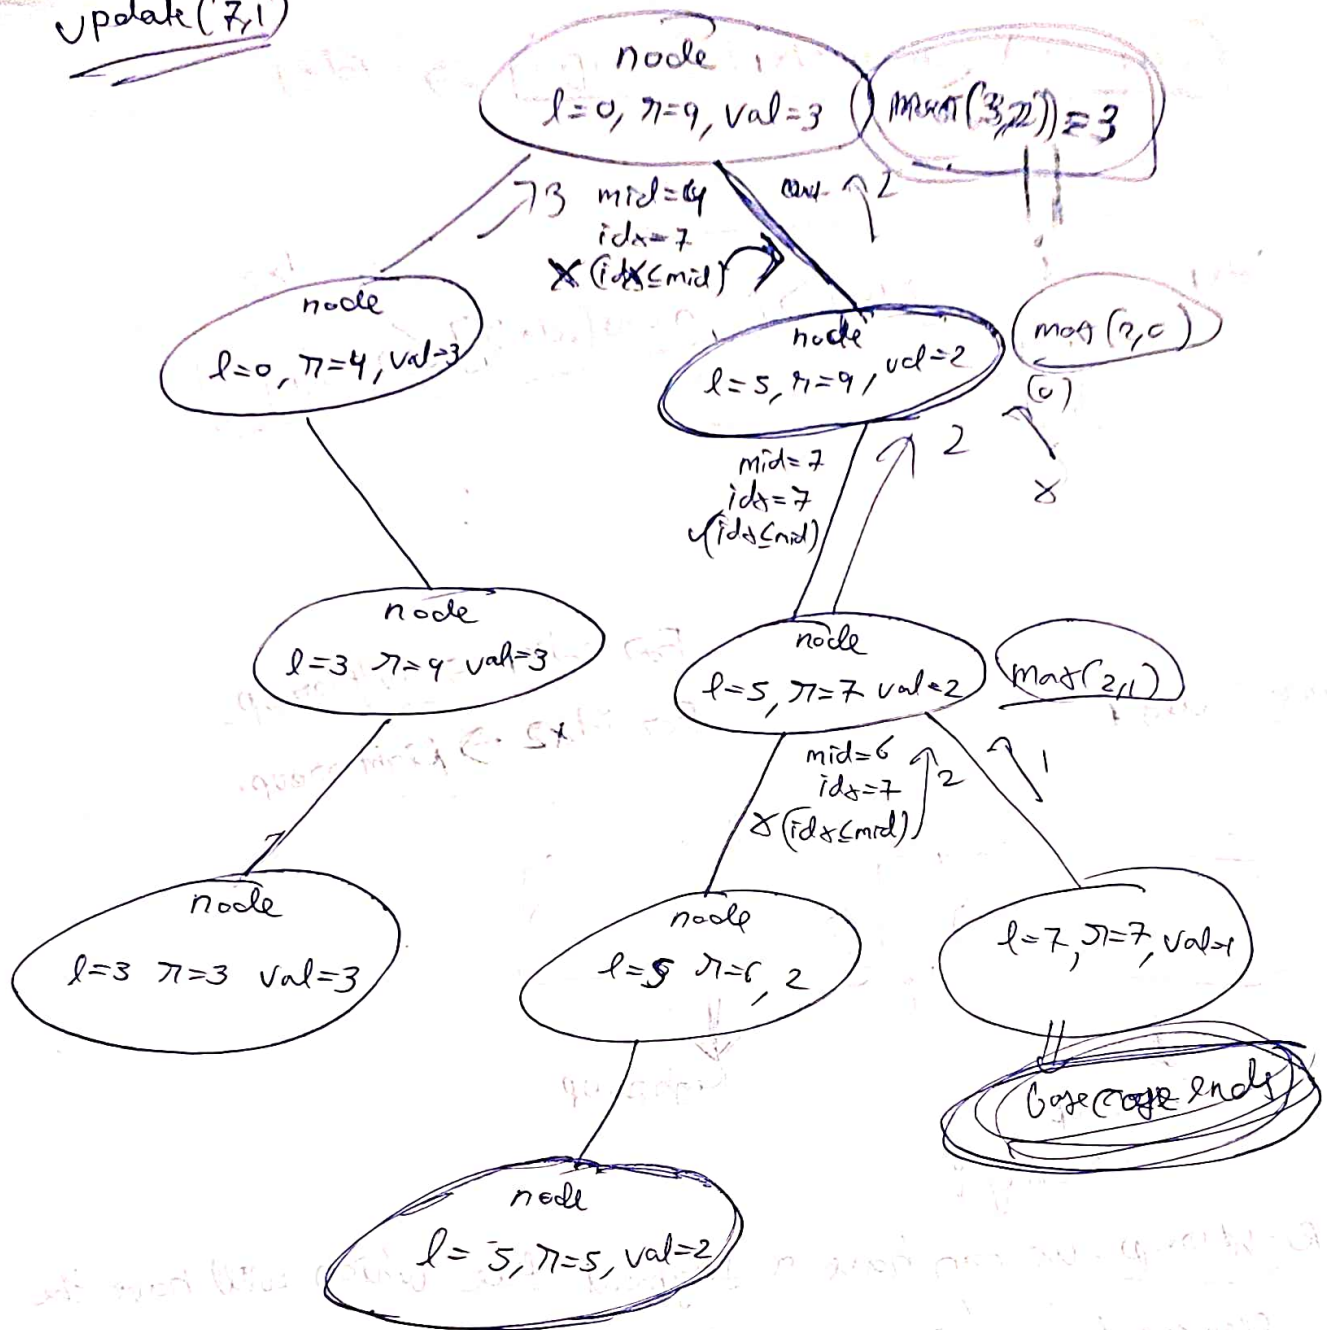 update(7,1)
node
l=0, r=9, val=3
max(3,2) = 3
3
mid=4
idx=7
X (idx≤mid)
2
node
l=0, r=4, val=3
node
l=5, r=9, val=2
max(2,0)
(0)
2
mid=7
idx=7
✓(idx≤mid)
node
l=3 r=9 val=3
node
l=5, r=7 val=2
max(2,1)
mid=6
idx=7
X (idx≤mid)
2
1
node
l=3 r=3 val=3
node
l=5 r=6, 2
l=7, r=7, val=1
Base case ends
node
l=5, r=5, val=2